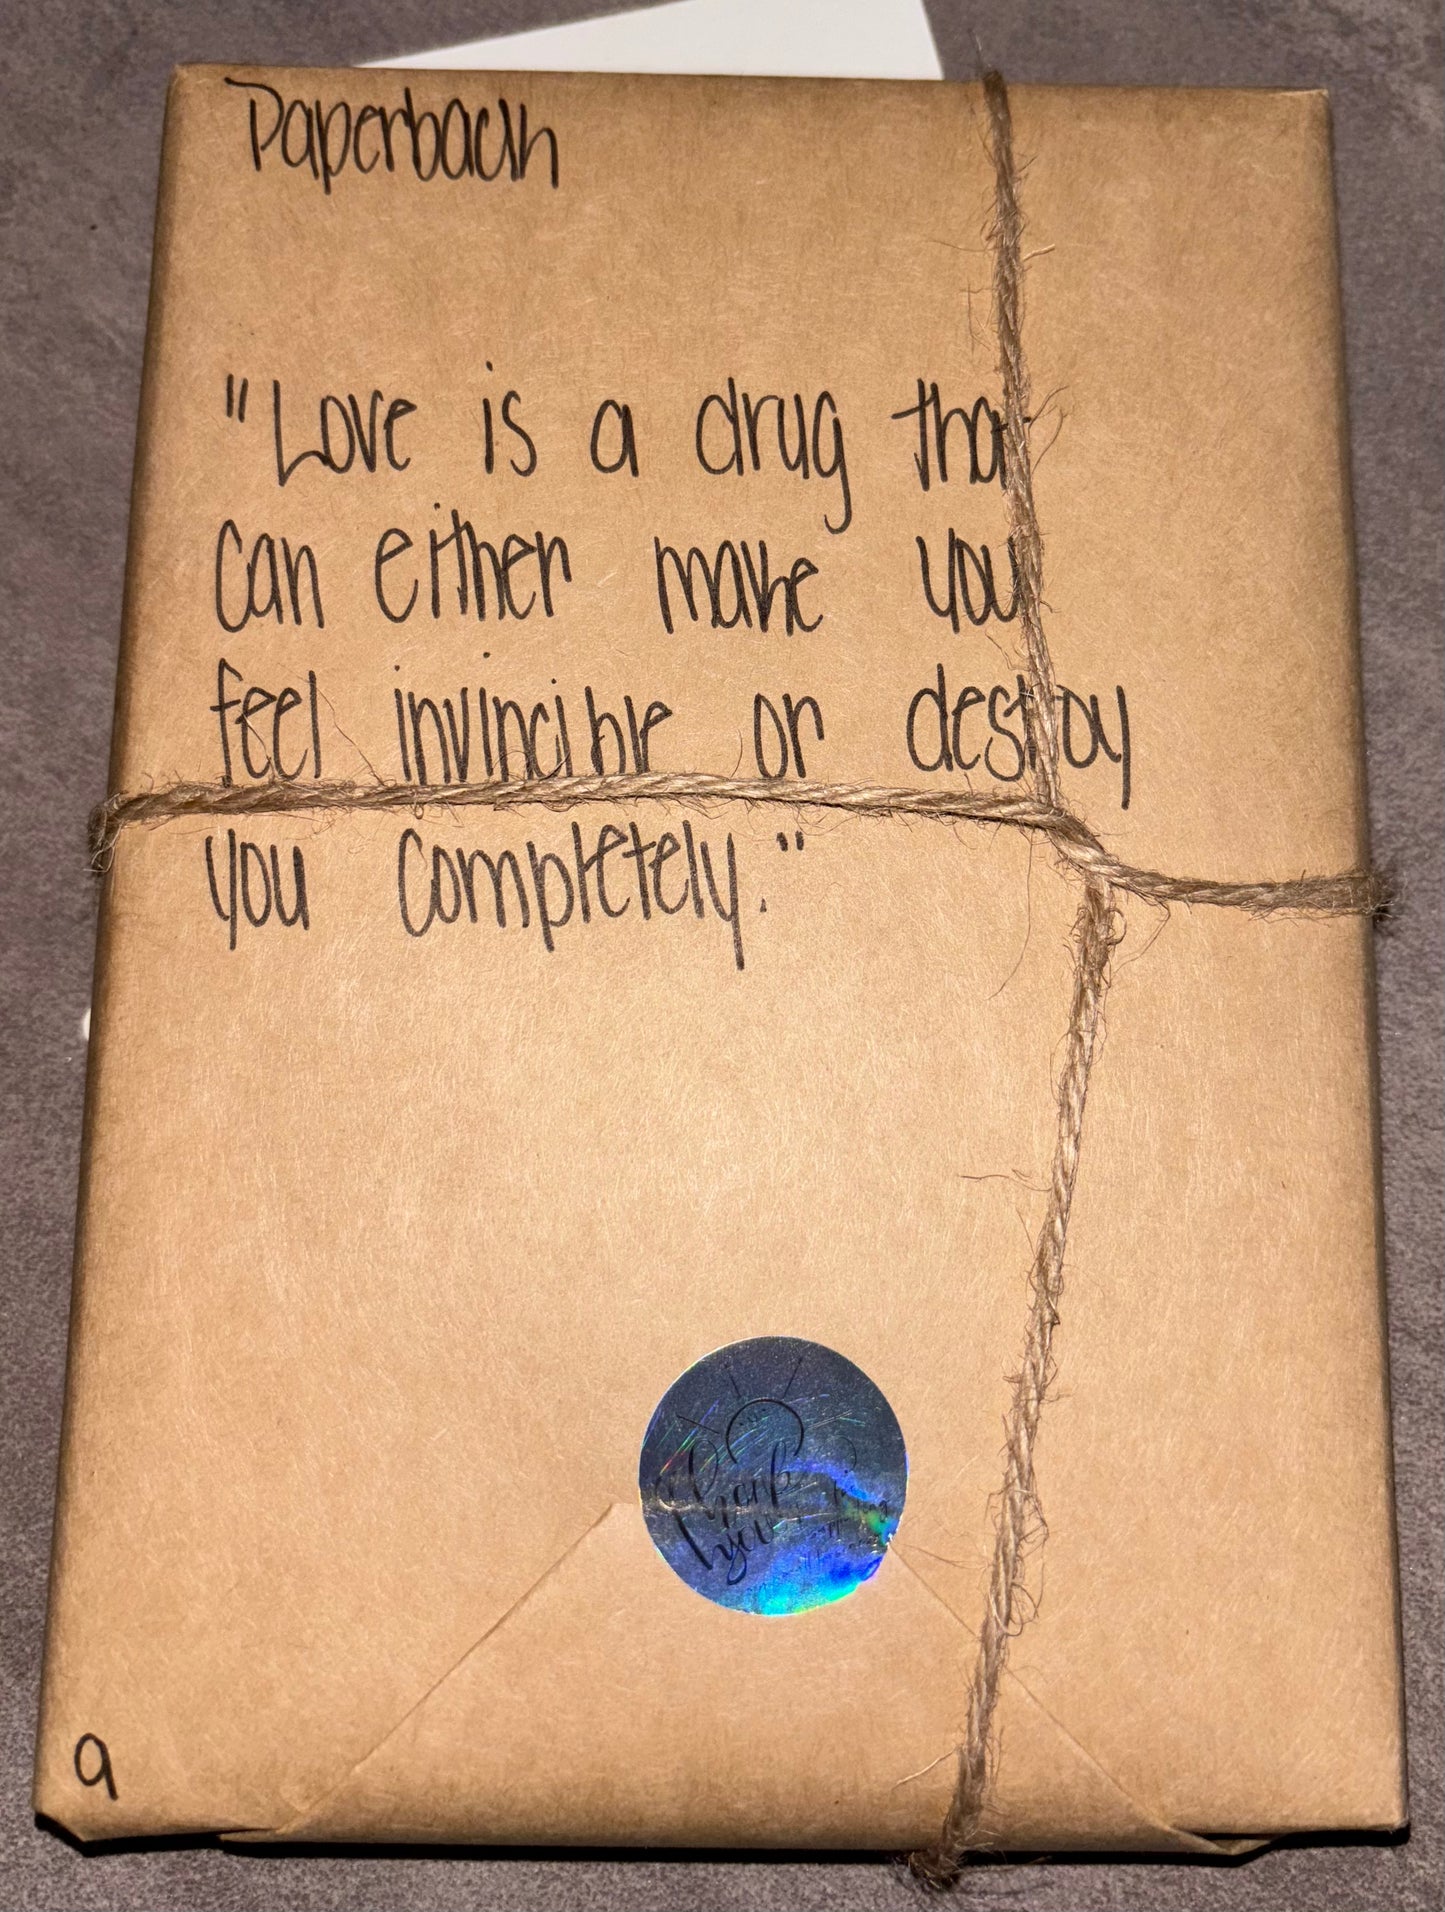 Paperback
"Love is a drug that
can either make you
feel invincible or destroy
you completely."
Thank
you
9